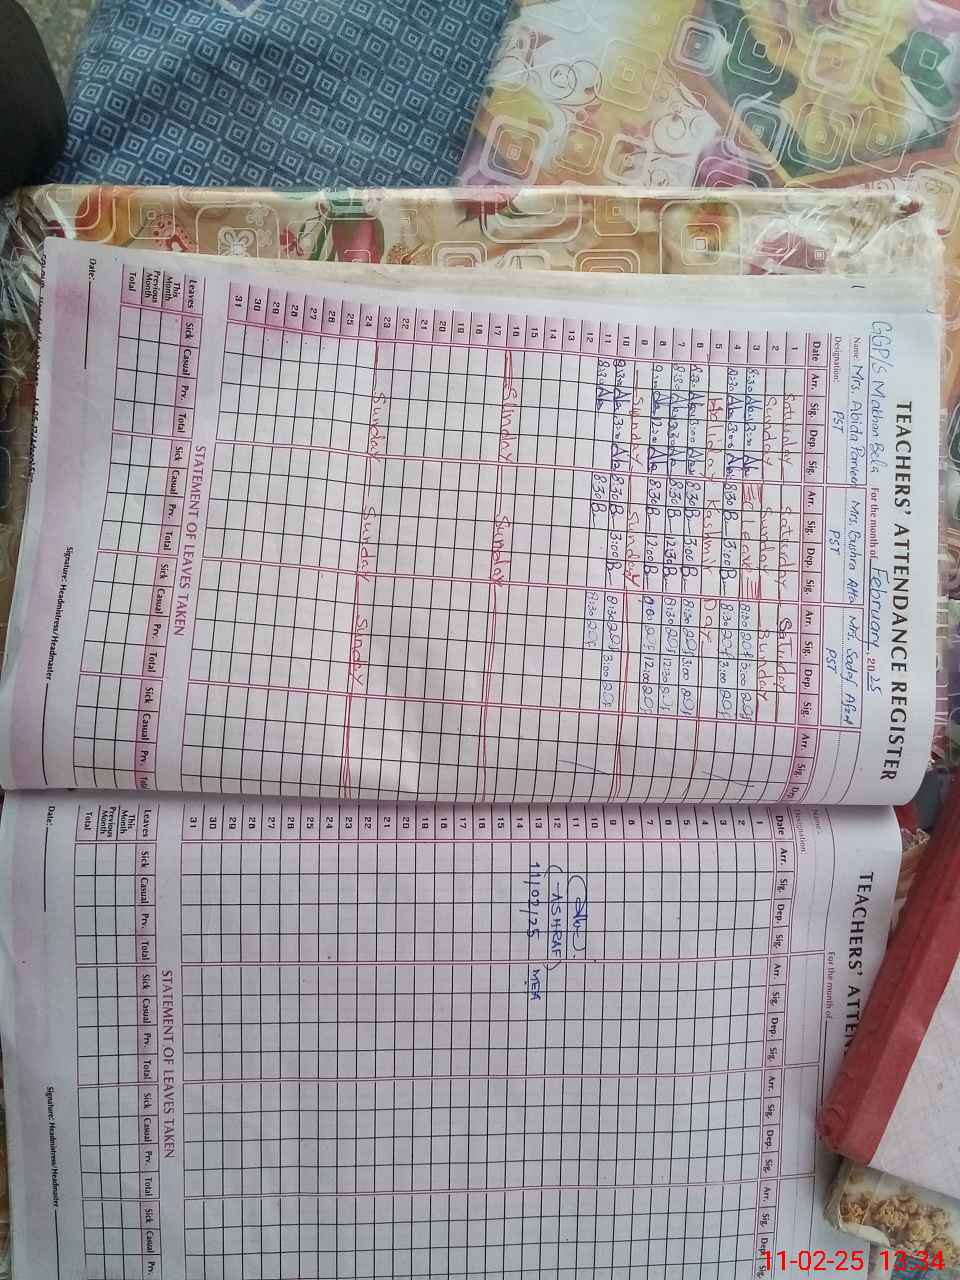 TEACHERS' ATTENDANCE REGISTER
GGP/S Makhan Bela For the month of February, 2025
Name: Mrs. Abida Parveen Mrs. Bushra Atta Mrs. Sadaf Afzal
Designation: PST PST PST
Date Arr. Sig. Dep. Sig. Arr. Sig. Dep. Sig. Arr. Sig. Dep. Sig. Arr. Sig.
1 Saturday Saturday Saturday
2 Sunday Sunday Sunday
3 8:30 3:00 C leave 8:30 3:00
4 8:30 3:00 8:30 3:00 8:30 3:00
5 Holiday Kashmir Day
6 8:30 3:00 8:30 3:00 8:30 3:00
7 8:30 12:30 8:30 12:30 8:30 12:30
8 9:00 12:00 8:30 12:00 9:00 12:00
9 Sunday Sunday
10 8:30 3:00 8:30 3:00 8:30 3:00
11 8:30 8:30 8:30
12
13
14
15
16 Sunday Sunday
17
18
19
20
21
22
23 Sunday Sunday Sunday
24
25
26
27
28
29
30
31
STATEMENT OF LEAVES TAKEN
Leaves Sick Casual Prv. Total Sick Casual Prv. Total Sick Casual Prv. Total Sick Casual Prv.
This Month
Previous Month
Total
Date: Signature: Headmistress/Headmaster
TEACHERS' ATTEN
For the month of
Name:
Designation:
Date Arr. Sig. Dep. Sig. Arr. Sig. Dep. Sig. Arr. Sig. Dep. Sig. Arr. Sig. Dep.
1
2
3
4
5
6
7
8
9
10
11
12 (ASHRAF)
13 11/02/25 MEA
14
15
16
17
18
19
20
21
22
23
24
25
26
27
28
29
30
31
STATEMENT OF LEAVES TAKEN
Leaves Sick Casual Prv. Total Sick Casual Prv. Total Sick Casual Prv. Total Sick Casual Prv.
This Month
Previous Month
Total
Date: Signature: Headmistress/Headmaster
11-02-25 13:34